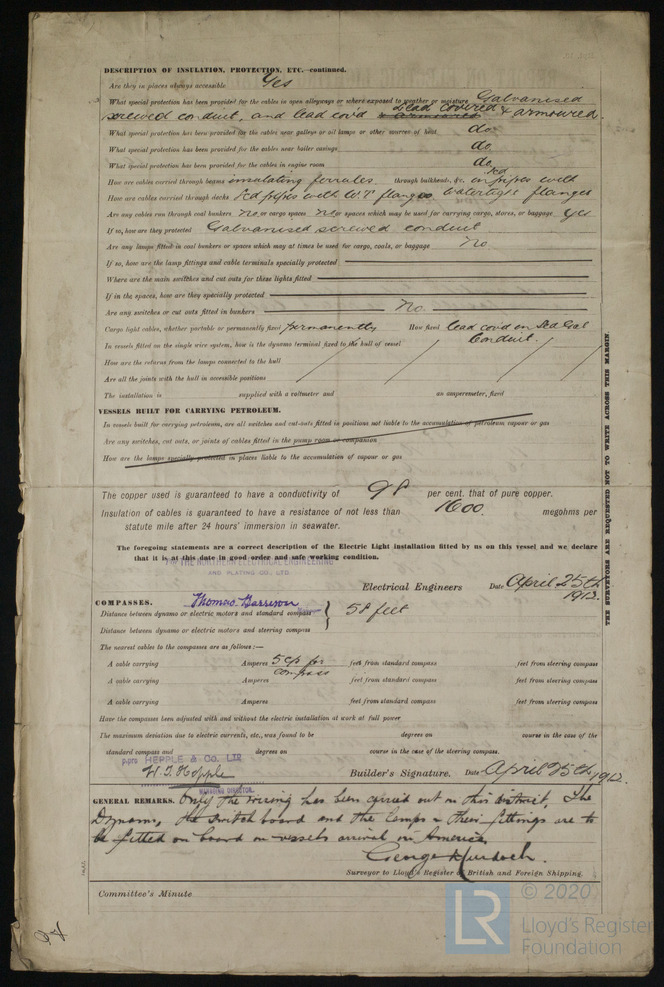 DESCRIPTION OF INSULATION, PROTECTION, ETC.—continued.
Are they in places always accessible Yes
What special protection has been provided for the cables in open alleyways or where exposed to weather or moisture Galvanised
screwed conduit, and lead cov'd & armoured lead covered & armoured.
What special protection has been provided for the cables near galleys or oil lamps or other sources of heat do
What special protection has been provided for the cables near boiler casings do
What special protection has been provided for the cables in engine room do
How are cables carried through beams insulating ferrules through bulkheads, &c. in pipes with
How are cables carried through decks pipes with W.T flanges watertight flanges
Are any cables run through coal bunkers no or cargo spaces no or spaces which may be used for carrying cargo, stores, or baggage yes
If so, how are they protected Galvanised screwed conduit
Are any lamps fitted in coal bunkers or spaces which may at times be used for cargo, coals, or baggage No
If so, how are the lamp fittings and cable terminals specially protected
Where are the main switches and cut outs for these lights fitted
If in the spaces, how are they specially protected
Are any switches or cut outs fitted in bunkers No.
Cargo light cables, whether portable or permanently fixed permanently How fixed lead cov'd in Gal
Conduit.
In vessels fitted on the single wire system, how is the dynamo terminal fixed to the hull of vessel
How are the returns from the lamps connected to the hull
Are all the joints with the hull in accessible positions
The installation is supplied with a voltmeter and an amperemeter, fixed
VESSELS BUILT FOR CARRYING PETROLEUM.
In vessels built for carrying petroleum, are all switches and cut-outs fitted in positions not liable to the accumulation of petroleum vapour or gas
Are any switches, cut outs, or joints of cables fitted in the pump room or companion
How are the lamps specially protected in places liable to the accumulation of vapour or gas
The copper used is guaranteed to have a conductivity of 98 per cent. that of pure copper.
Insulation of cables is guaranteed to have a resistance of not less than 1600. megohms per
statute mile after 24 hours' immersion in seawater.
The foregoing statements are a correct description of the Electric Light installation fitted by us on this vessel and we declare
that it is at this date in good order and safe working condition.
FOR THE NORTHERN ELECTRICAL ENGINEERING
AND PLATING CO. LTD.
Electrical Engineers Date April 25th
1912.
COMPASSES. Thomas Garrison
Distance between dynamo or electric motors and standard compass 58 feet
Distance between dynamo or electric motors and steering compass
The nearest cables to the compasses are as follows:—
A cable carrying Amperes 5 cp for feet from standard compass feet from steering compass
compass
A cable carrying Amperes feet from standard compass feet from steering compass
A cable carrying Amperes feet from standard compass feet from steering compass
Have the compasses been adjusted with and without the electric installation at work at full power
The maximum deviation due to electric currents, etc., was found to be degrees on course in the case of the
standard compass and degrees on course in the case of the steering compass.
p.pro HEPPLE & Co. LTD
W. T. Hepple Builder's Signature. Date April 25th 1912.
MANAGING DIRECTOR.
GENERAL REMARKS. Only the wiring has been carried out in this district, The
Dynamo, the switch board and the lamps & their fittings are to
be fitted on board on vessels arrival in America.
George Murdoch.
Surveyor to Lloyd's Register of British and Foreign Shipping.
Committee's Minute
THE SURVEYORS ARE REQUESTED NOT TO WRITE ACROSS THIS MARGIN.
LR © 2020
Lloyd's Register
Foundation